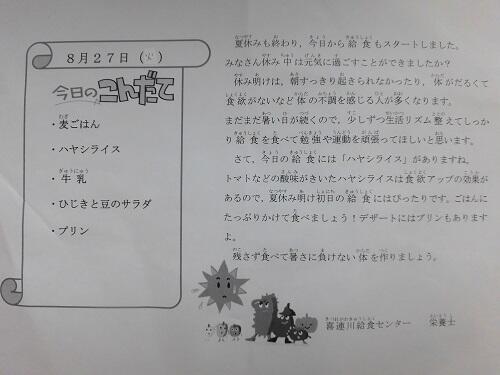 8月27日（火）
今日のこんだて
・麦ごはん
・ハヤシライス
・牛乳
・ひじきと豆のサラダ
・プリン
夏休みも終わり、今日から給食もスタートしました。
みなさん休み中は元気に過ごすことができましたか？
休み明けは、朝すっきり起きられなかったり、体がだるくて
食欲がないなど体の不調を感じる人が多くなります。
まだまだ暑い日が続くので、少しずつ生活リズム整えてしっか
り給食を食べて勉強や運動を頑張ってほしいと思います。
さて、今日の給食には「ハヤシライス」がありますね。
トマトなどの酸味がきいたハヤシライスは食欲アップの効果が
あるので、夏休み明け初日の給食にはぴったりです。ごはんに
たっぷりかけて食べましょう！デザートにはプリンもあります
よ。
残さず食べて暑さに負けない体を作りましょう。
喜連川給食センター　栄養士